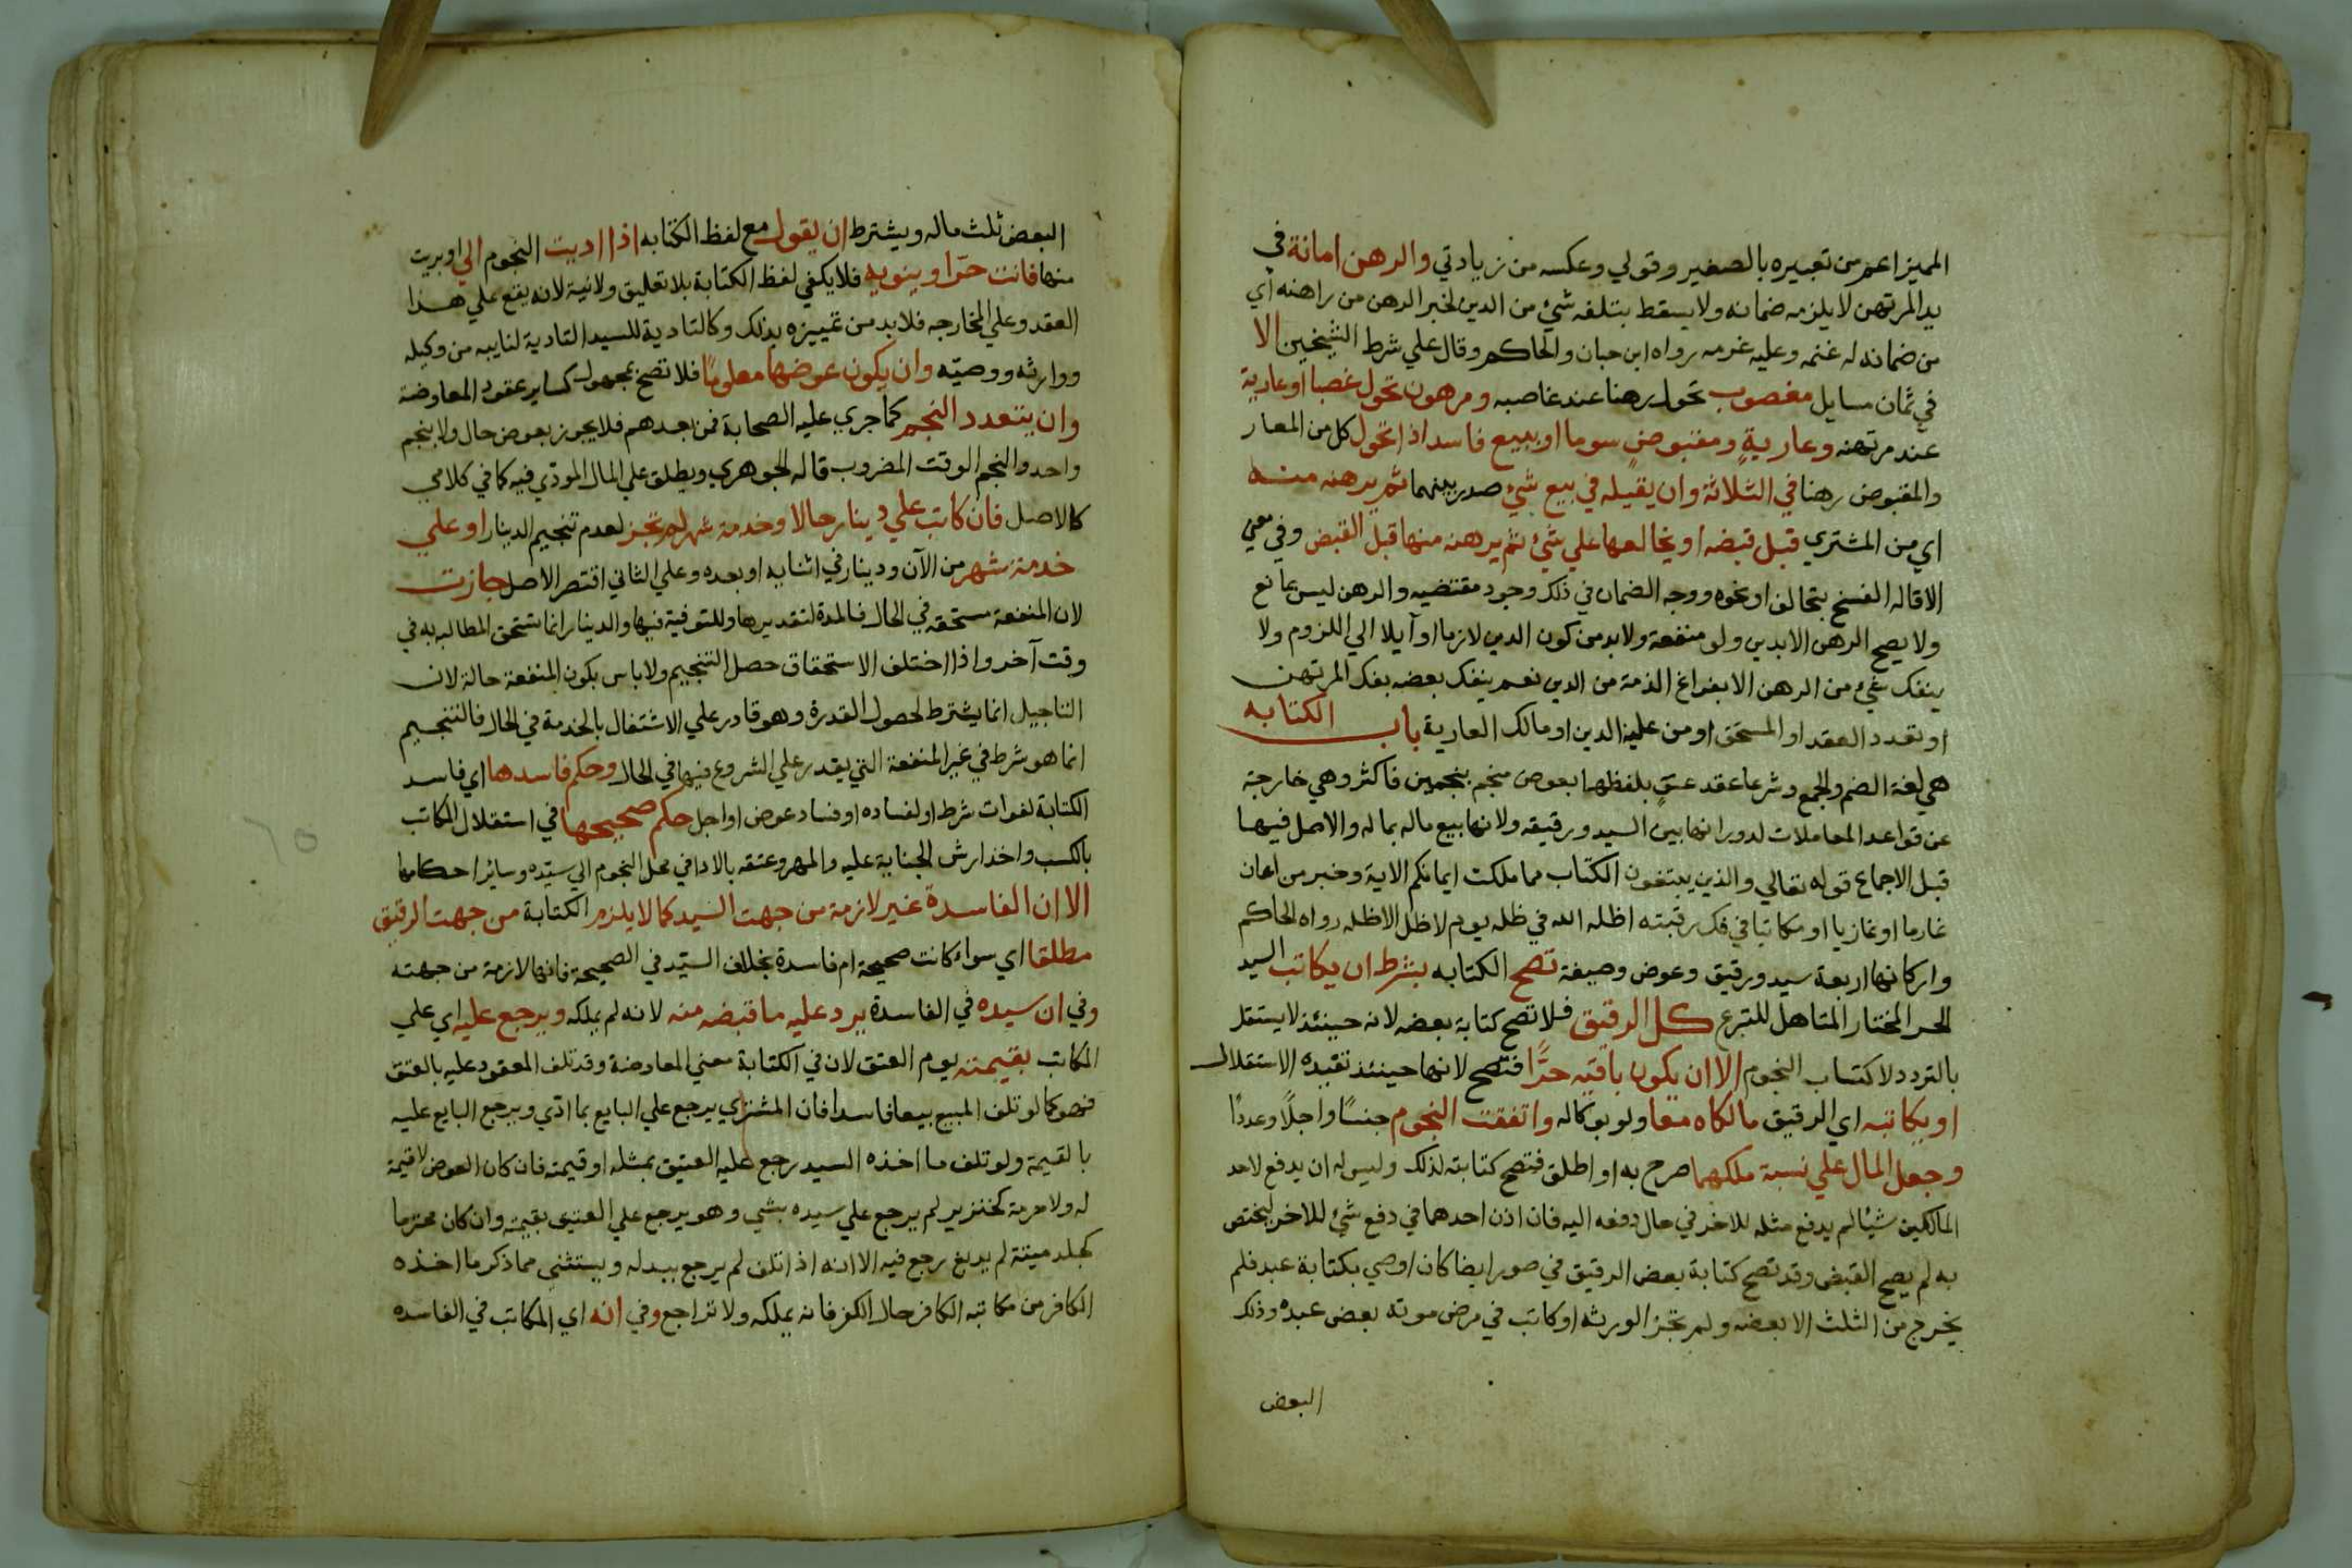 المميز اعم من تعبيره بالصغير وقولي وعكسه من زيادتي والرهن امانة في
يد المرتهن لا يلزمه ضمانه ولا يسقط بتلفه شئ من الدين لخبر الرهن من راهنه أي
من ضمانه له غنمه وعليه غرمه رواه ابن حبان والحاكم وقال علي شرط الشيخين الا
في ثمان مسايل مغصوب تحول رهنا عند غاصبه ومرهون تحول غصبا او عارية
عند مرتهنه وعارية ومقبوض سوما او ببيع فاسد اذا تحول كل من المعار
والمقبوض رهنا في الثلاثة وان يقيله في بيع شئ صدر بينهما ثم يرهنه منه
اي من المشتري قبل قبضه او يخالعها علي شئ ثم يرهنه منها قبل القبض وفي معني
الاقاله الفسخ بتحالف او نحوه ووجه الضمان في ذلك وجود مقتضيه والرهن ليس بمانع
ولا يصح الرهن الا بدين ولو منفعة ولا بد من كون الدين لازما او آيلا الي اللزوم ولا
ينفك شئ من الرهن الا بفراغ الذمة من الدين نعم ينفك بعضه بفك المرتهن
او تعدد العقد او المستحق او من عليه الدين او مالك العارية باب الكتابه
هي لغة الضم والجمع وشرعا عقد عتق بلفظها بعوض منجم بنجمين فاكثر وهي خارجة
عن قواعد المعاملات لدورانها بين السيد ورقيقه ولانها بيع ماله بماله والاصل فيها
قبل الاجماع قوله تعالي والذين يبتغون الكتاب مما ملكت ايمانكم الاية وخبر من اعان
غارما او غازيا او مكاتبا في فك رقبته اظله الله في ظله يوم لا ظل الا ظله رواه الحاكم
واركانها اربعة سيد ورقيق وعوض وصيغة تصح الكتابه بشرط ان يكاتب السيد
الحر المختار المتاهل للتبرع كل الرقيق فلا تصح كتابة بعضه لانه حينئذ لا يستقل
بالتردد لاكتساب النجوم الا ان يكون باقيه حرًا فتصح لانها حينئذ تفيده الاستقلال
او يكاتبه اي الرقيق مالكاه معا ولو بوكاله واتفقت النجوم جنسًا واجلًا وعددًا
وجعل المال علي نسبة ملكهما صرح به او اطلق فتصح كتابته لذلك وليس له ان يدفع لاحد
المالكين شيئا لم يدفع مثله للاخر في حال دفعه اليه فان اذن احدهما في دفع شئ للاخر ليختص
به لم يصح القبض وقد تصح كتابة بعض الرقيق في صور ايضا كان اوصي بكتابة عبد فلم
يخرج من الثلث الا بعضه ولم تجز الورثه او كاتب في مرض موته بعض عبده وذلك
البعض
البعض ثلث ماله ويشترط ان يقول مع لفظ الكتابه اذا اديت النجوم الي او بريت
منها فانت حرّ او ينويه فلا يكفي لفظ الكتابة بلا تعليق ولا نية لانه يقع علي هذا
العقد وعلي المخارجه فلا بد من تمييزه بذلك وكالتادية للسيد التادية لنايبه من وكيله
ووارثه ووصيّه وان يكون عوضها معلومًا فلا تصح بمجهول كساير عقود المعاوضة
وان يتعدد النجم كما جري عليه الصحابة فمن بعدهم فلا يجوز بعوض حال ولا بنجم
واحد والنجم الوقت المضروب قاله الجوهري ويطلق علي المال المودّي فيه كما في كلامي
كالاصل فان كاتب علي دينار حالا وخدمة شهر لم تجز لعدم تنجيم الدينار او علي
خدمة شهر من الآن ودينار في اثنايه او بعده وعلي الثاني اقتصر الاصل جازت
لان المنفعة مستحقه في الحال فالمدة لتقديرها وللتوفية فيها والدينار انما تستحق المطالبه به في
وقت آخر واذا اختلف الاستحقاق حصل التنجيم ولا باس بكون المنفعة حالة لان
التاجيل انما يشترط لحصول القدرة وهو قادر علي الاشتغال بالخدمة في الحال فالتنجيم
انما هو شرط في غير المنفعة التي يقدر علي الشروع فيها في الحال وحكم فاسدها اي فاسد
الكتابة لفوات شرط او لفساده او فساد عوض او اجل حكم صحيحها في استقلال المكاتب
بالكسب واخذ ارش الجناية عليه والمهر وعتقه بالادا في محل النجوم الي سيّده وسائر احكامها
الا ان الفاسدة غير لازمة من جهت السّيد كما لا يلزم الكتابة من جهت الرقيق
مطلقا اي سواء كانت صحيحة ام فاسدة بخلاف السيّد في الصحيحة فانها لازمة من جهته
وفي ان سيده في الفاسدة يرد عليه ما قبضه منه لانه لم يملكه ويرجع عليه اي علي
المكاتب بقيمته يوم العتق لان في الكتابة معني المعاوضة وقد تلف المعقود عليه بالعتق
فهو كما لو تلف المبيع بيعا فاسدا فان المشتري يرجع علي البايع بما ادّي ويرجع البايع عليه
بالقيمة ولو تلف ما اخذه السيد رجع عليه العتيق بمثله او قيمته فان كان العوض لا قيمة
له ولا حرمة كخنزير لم يرجع علي سيده بشي وهو يرجع علي العتيق بقيمته وان كان محترما
كجلد ميتة لم يدبغ رجع فيه الا انه اذا تلف لم يرجع ببدله ويستثني مما ذكر ما اخذه
الكافر من مكاتبه الكافر حال الكفر فانه يملكه ولا تراجع وفي انه اي المكاتب في الفاسده